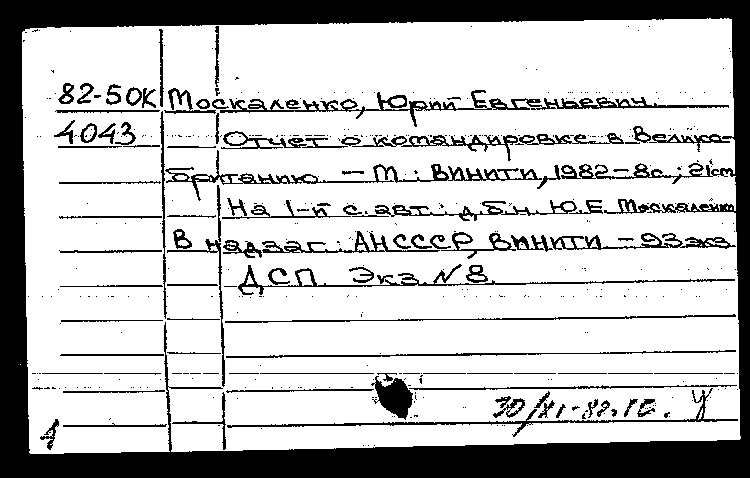 82-50К Москаленко, Юрий Евгеньевич.
4043 Отчет о командировке в Велико-
британию. - М.: ВИНИТИ, 1982 - 8с.; 21см
На 1-й с. авт.: д.б.н. Ю.Е. Москаленко
В надзаг.: АН СССР, ВИНИТИ - 93 экз
ДСП. Экз. N 8.
30/XI-82.